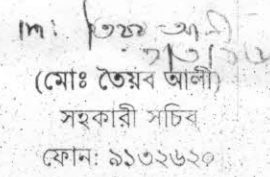 (মোঃ তৈয়ব আলী)
সহকারী সচিব
ফোন: ৯১৩২৬২০